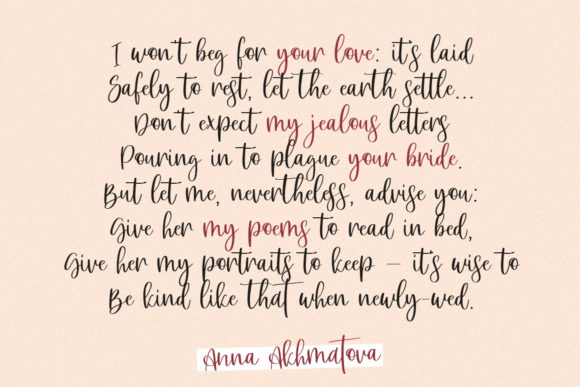 I won't beg for your love: it's laid
Safely to rest, let the earth settle...
Don't expect my jealous letters
Pouring in to plague your bride.
But let me, nevertheless, advise you:
Give her my poems to read in bed,
Give her my portraits to keep – it's wise to
Be kind like that when newly-wed.
Anna Akhmatova